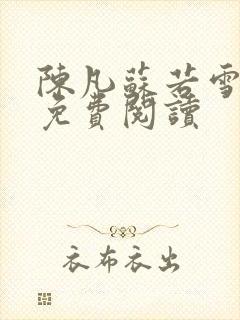 陳凡蘇若雪
免費閱讀
衣布衣出